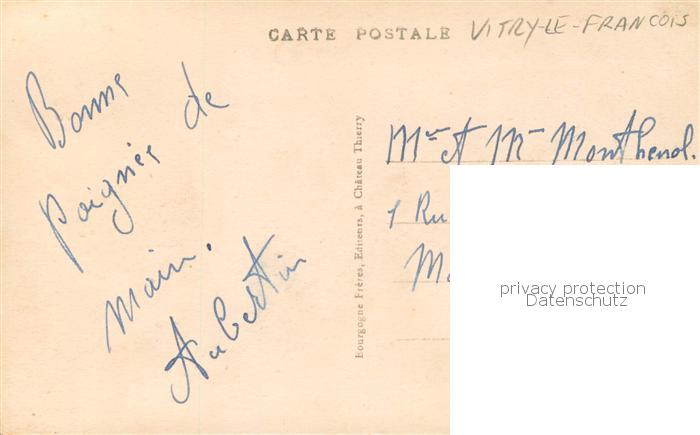 CARTE POSTALE
VITRY-LE-FRANCOIS
Bonne
poignée de
main.
Aubertin
Bourgogne Frères, Editeurs, à Château Thierry
Mr et Mme Monthenol.
1 Ru
privacy protection
Datenschutz